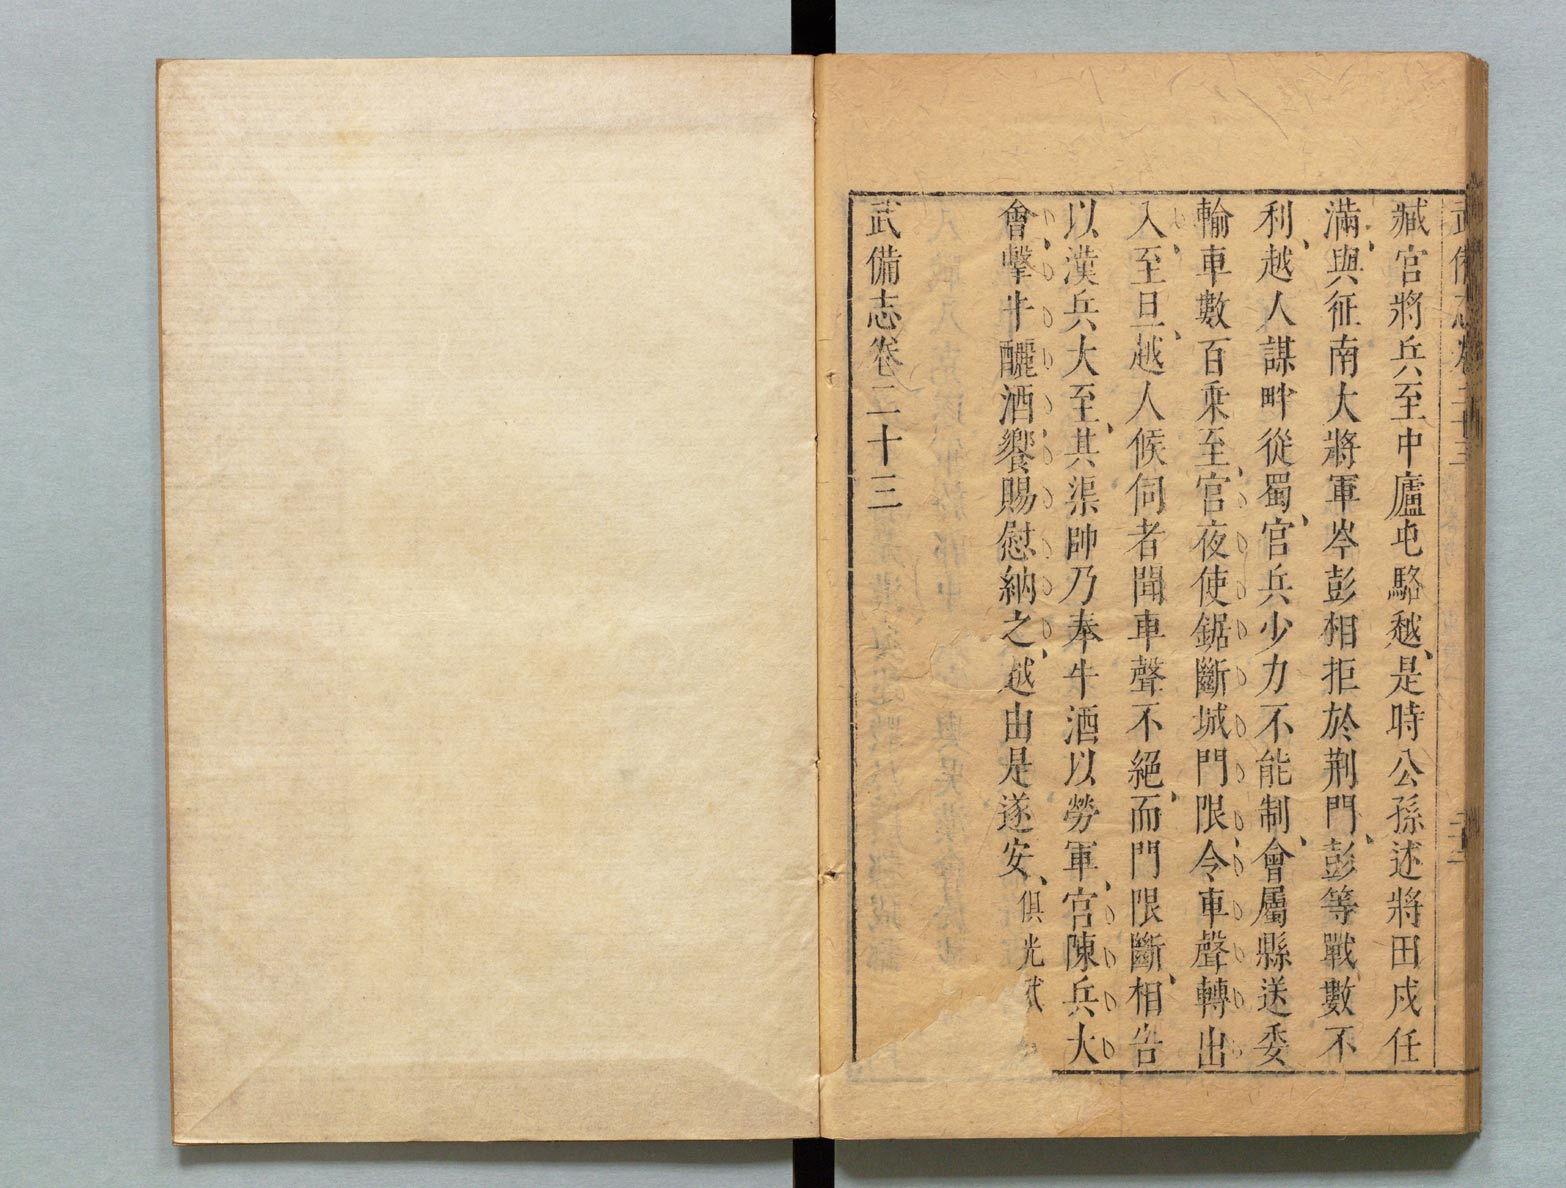 武備志卷二十三
臧宮將兵至中廬屯駱越是時公孫述將田戎任
滿與征南大將軍岑彭相拒於荆門彭等戰數不
利越人謀畔從蜀宮兵少力不能制會屬縣送委
輸車數百乘至宮夜使鋸斷城門限令車聲轉出
入至旦越人候伺者聞車聲不絕而門限斷相告
以漢兵大至其渠帥乃奉牛酒以勞軍宮陳兵大
會擊牛釃酒饗賜慰納之越由是遂安俱光武
武備志卷二十三